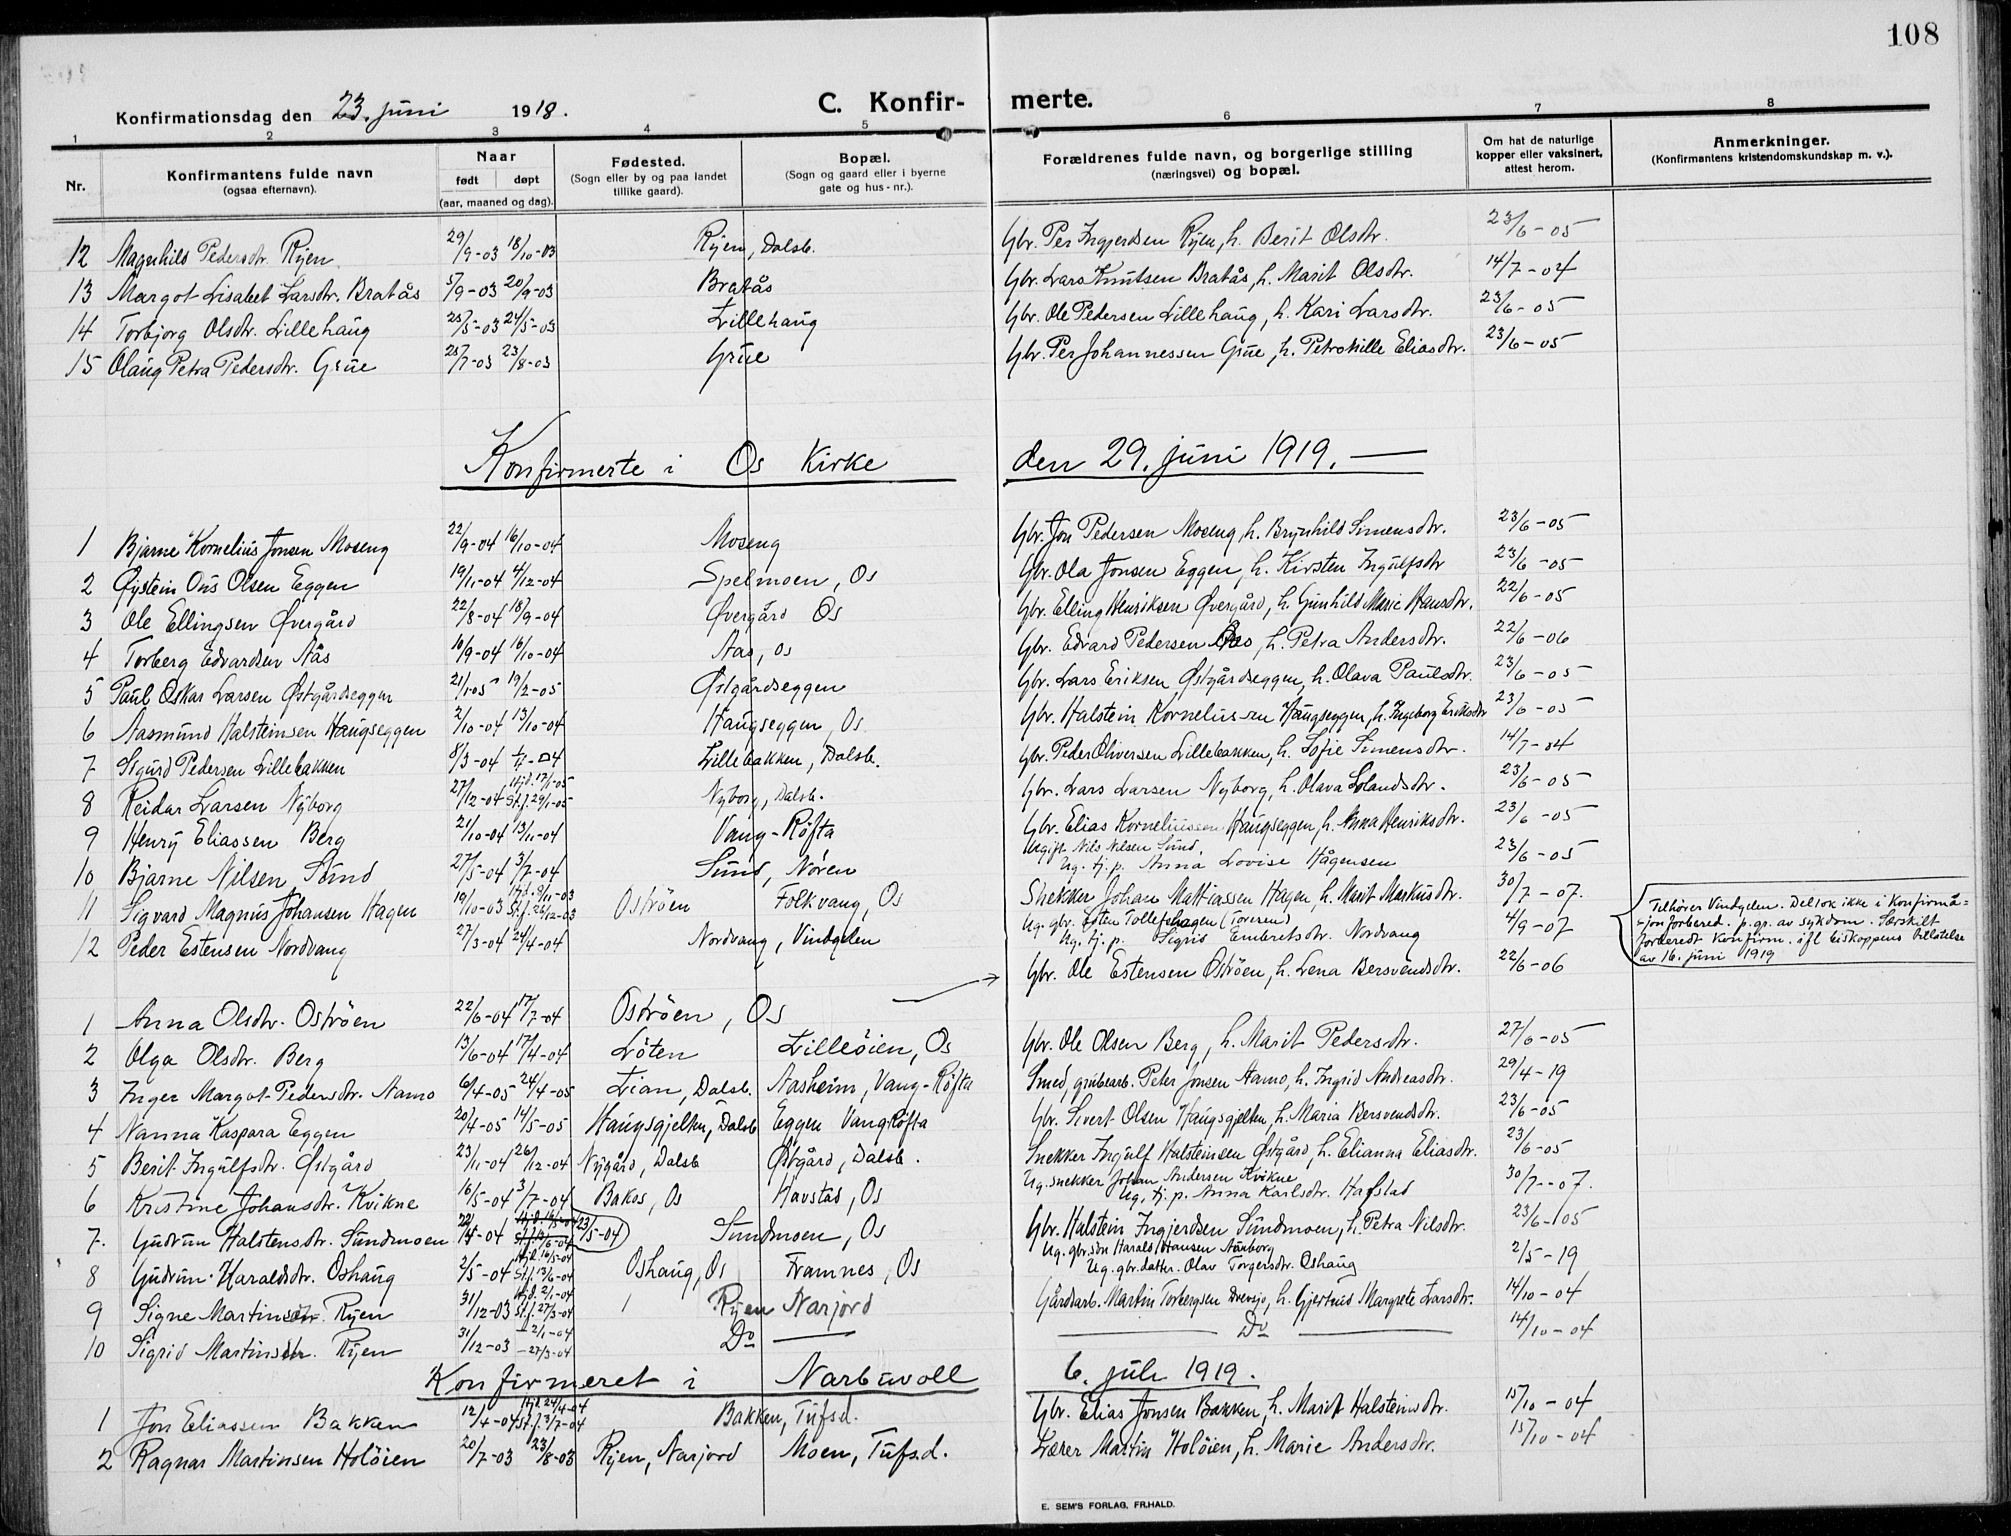 108
Konfirmationsdag den 23. juni 1918. C. Konfir- merte.
1 2 3 4 5 6 7 8
Nr. Konfirmantens fulde navn (ogsaa efternavn). Naar født døpt (aar, maaned og dag). Fødested. (Sogn eller by og paa landet tillike gaard). Bopæl. (Sogn og gaard eller i byerne gate og hus-nr.). Forældrenes fulde navn, og borgerlige stilling (næringsvei) og bopæl. Om hat de naturlige kopper eller vaksinert, attest herom. Anmerkninger. (Konfirmantens kristendomskundskap m. v.).
12 Magnhild Pedersdtr. Ryen 29/9-03 18/10-03 Ryen, Dalsb. Gbr. Per Ingjerdsen Ryen, h. Berit Olsdtr. 23/6-05
13 Margot Lisabet Larsdtr. Bratås 5/9-03 20/9-03 Bratås Gbr. Lars Knutsen Bratås, h. Marit Olsdtr. 14/7-04
14 Torbjorg Olsdtr. Lillehaug 25/5-03 24/5-03 Lillehaug Gbr. Ole Pedersen Lillehaug, h. Kari Larsdtr. 23/6-05
15 Olaug Petra Pedersdtr. Grue 25/7-03 23/8-03 Grue Gbr. Per Johannessen Grue, h. Petronille Eliasdtr. 23/6-05
Konfirmerte i Os Kirke den 29. juni 1919. —
1 Bjarne Kornelius Jonsen Moseng 22/9-04 16/10-04 Moseng Gbr. Jon Pedersen Moseng, h. Brynhild Simensdtr. 23/6-05
2 Øystein Ous Olsen Eggen 19/11-04 4/12-04 Spelmoen, Os Gbr. Ola Jonsen Eggen, h. Kirsten Ingulfsdtr 23/6-05
3 Ole Ellingsen Øvergård 22/8-04 18/9-04 Øvergård Os Gbr. Elling Henriksen Øvergård, h. Gunhild Marie Hansdtr. 22/6-05
4 Torberg Edvardsen Aås 10/9-04 16/10-04 Aas, Os Gbr. Edvard Pedersen Aas, h. Petra Andersdtr. 22/6-06
5 Paul Oskar Larsen Østgårdseggen 21/1-05 19/2-05 Østgårdseggen Gbr. Lars Eriksen Østgårdseggen, h. Olava Paulsdtr. 23/6-05
6 Aasmund Halsteinsen Haugseggen 2/10-04 13/10-04 Haugseggen, Os Gbr. Halstein Korneliussen Haugseggen, h. Ingeborg Eriksdtr 23/6-05
7 Sigurd Pedersen Lillebakken 8/3-04 Lillebakken, Dalsb. Gbr. Peder Oliversen Lillebakken, h. Sofie Simensdtr. 14/7-04
8 Reidar Larsen Nyborg 27/12-04 Hjd. 17/1-05 St.f. 29/1-05 Nyborg, Dalsb. Gbr. Lars Larsen Nyborg, h. Olava Lolandsdtr. 23/6-05
9 Henry Eliassen Berg 21/10-04 13/11-04 Vang-Röfta Gbr. Elias Korneliussen Haugseggen, h. Anna Henriksdtr. 23/6-05
10 Bjarne Nilsen Sund 27/5-04 3/7-04 Sund, Nören Ugift Nils Nilsen Sund. Ug. tj. p. Anna Lovise Hågensen 23/6-05
11 Sigvard Magnus Johansen Hagen 19/10-03 Hjd. 9/11-03 St.f. 26/12-03 Oströen Folkvang, Os Snekker Johan Mattiassen Hagen, h. Marit Markusdtr. 30/7-07.
12 Peder Estensen Nordvang 27/3-04 24/4-04 Nordvang, Vindgelen Ug. gbr. Esten Tollefshagen (Toresen) Ug. tj. p. Sigrid Embretsdtr. Nordvang 4/9-07
Tilhører Vindgelen. Deltok ikke i konfirma=
=sjonsforbered. p. gr. av sykdom. Særskilt
forberedt konfirm. ifl. biskoppens tillatelse
av 16. juni 1919
1 Anna Olsdtr. Oströen 22/6-04 17/7-04 Oströen, Os Gbr. Ole Estensen Oströen, h. Lena Bersvendsdtr. 22/6-06
2 Olga Olsdtr. Berg 13/6-04 17/4-04 Löten Lilleöien, Os Gbr. Ole Olsen Berg, h. Marit Pedersdtr. 27/6-05
3 Inger Margot Pedersdtr. Aamo 6/4-05 24/4-05 Lian, Dalsb. Aasheim, Vang-Röfta Smed, grubearb. Peter Jonsen Aamo, h. Ingrid Andreasdtr. 29/4-19
4 Nanna Kaspara Eggen 20/4-05 14/5-05 Haugsgjelten, Dalsb Eggen Vangröfta Gbr. Sivert Olsen Haugsgjelten, h. Maria Bersvendsdtr. 23/6-05
5 Berit Ingulfsdtr. Østgård 23/11-04 26/12-04 Nygård, Dalsb Østgård, Dalsb. Snekker Ingulf Halsteinsen Østgård, h. Elianna Eliasdtr. 23/6-05
6 Kristine Johansdtr. Kvikne 16/5-04 3/7-04 Bakos, Os Havstad, Os Ug. snekker Johan Andersen Kvikne Ug. tj. p. Anna Karlsdtr. Hafstad 30/7-07.
7. Gudrun Halstensdtr. Sundmoen 22/4-04 23/5-04 Sundmoen, Os Gbr. Halstein Ingjerdsen Sundmoen, h. Petra Nilsdtr. 23/6-05
8 Gudrun Haraldsdtr. Oshaug 2/5-04 Hjd. 16/5-04 St.f. 13/6-04 Oshaug, Os Framnes, Os Ug. gbr. søn Harald Hansen Aamborg Ug. gbr. datter. Olav Torgersdtr. Oshaug 2/5-19
9 Signe Martinsdtr. Ryen 31/12-03 Hjd. 2/1-04 St.f. 27/3-04 Ryen Narjord Gårdarb. Martin Torbergsen Drevsjo, h. Gjertrud Margrete Larsdtr. 14/10-04
10 Sigrid Martinsdtr. Ryen 31/12-03 -2/1-04 -27/3-04 Do — — Do — 14/10-04
Konfirmeret i Narbuvoll 6. juli 1919.
1 Jon Eliassen Bakken 12/4-04 Hjd. 24/4-04 St.f. 3/7-04 Bakken, Tufsd. Gbr. Elias Jonsen Bakken, h. Marit Halsteinsdtr. 15/10-04
2 Ragnar Martinsen Holöien 20/7-03 23/8-03 Ryen, Narjord Moen, Tufsd. Lærer Martin Holöien, h. Marie Andersdtr. 15/10-04
E. SEM'S FORLAG, FR.HALD.